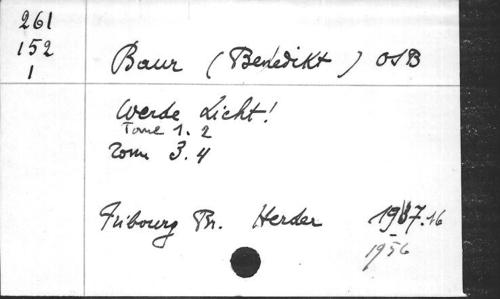 261
152
1
Baur (Benedikt) OSB
Werde Licht!
Tome 1. 2
Tom 3. 4
Fribourg Br. Herder 1937.16
1956